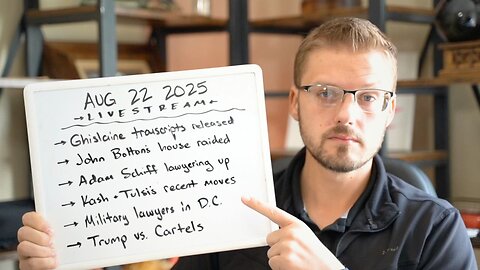 AUG 22 2025
→LIVESTREAM←
→ Ghislaine transcripts released
→ John Bolton's house raided
→ Adam Schiff lawyering up
→ Kash + Tulsi's recent moves
→ Military lawyers in D.C.
→ Trump vs. Cartels